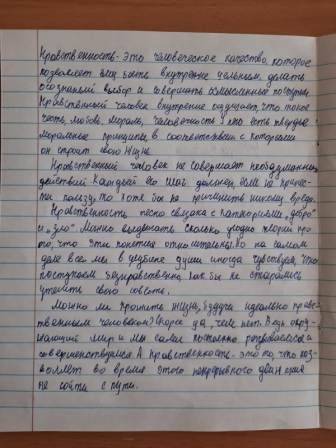 Нравственность - это человеческое качество, которое
позволяет ему быть внутренне цельным, делать
осознанный выбор и совершать осмысленный поступки.
Нравственный человек внутренне ощущает, что такое
честь, любовь, мораль, человечность, у него есть твердые
моральные принципы, в соответствии с которыми
он строит свою жизнь.
Нравственный человек не совершает необдуманных
действий. Каждый его шаг должен, если не принес-
ти пользу, то хотя бы не причинить никому вреда.
Нравственность тесно связана с категориями "добро"
и "зло". Можно выдвигать сколько угодно теорий про
то, что эти понятия относительны, но на самом
деле все мы в глубине души иногда чувствуем, что
поступаем безнравственно, как бы не старались
утешить свою совесть.
Можно ли прожить жизнь, будучи идеально нравс-
твенным человеком? Скорее да, чем нет. Ведь окру-
жающий мир и мы сами постоянно развиваемся и
совершенствуемся. А нравственность - это то, что поз-
воляет во время этого непрерывного движения
не сойти с пути.